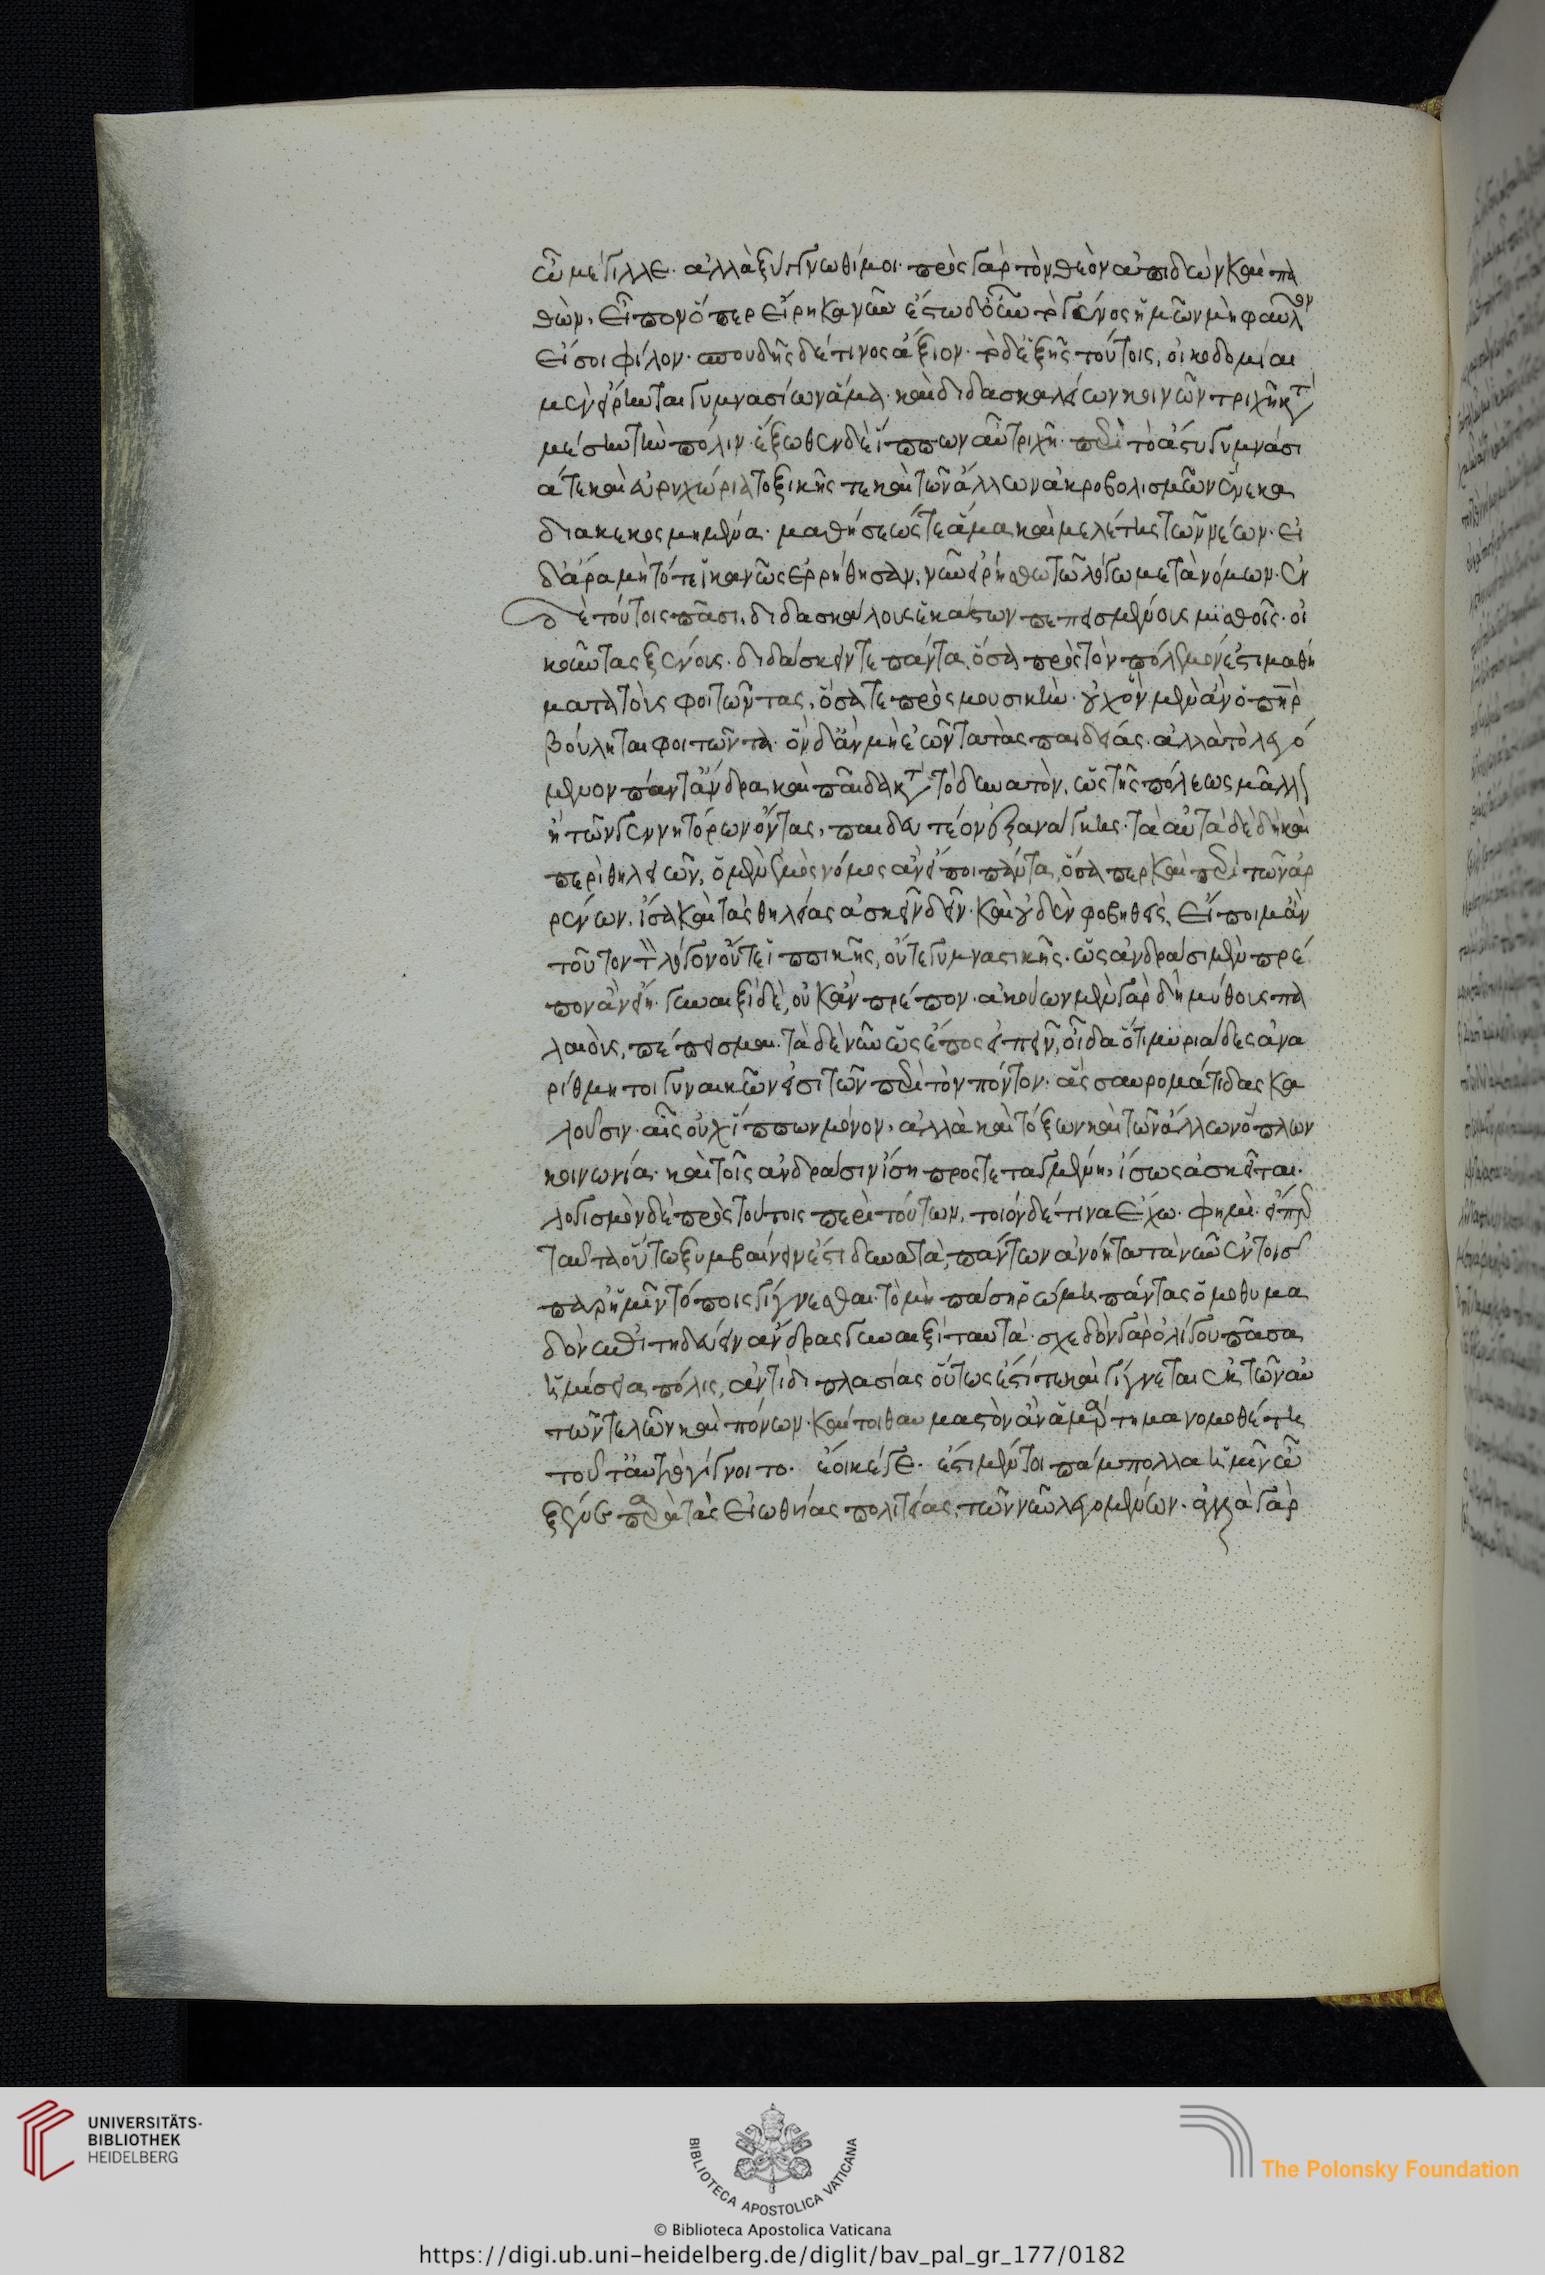 ὦ μέγιλλε. ἀλλὰ ξύγγνωθί μοι. πρὸς γὰρ τὸν θεὸν ἀπιδὼν καὶ πα
θὼν, εἶπον ὅπερ εἴρηκα νῦν ἔστω δ' οὖν τὸ γένος ἡμῶν μὴ φαῦλον
εἴ σοι φίλον. σπουδῆς δέ τινος ἄξιον. τὸ δ' ἑξῆς τούτοις, οἰκοδομίαι
μὲν εἴρηνται γυμνασίων ἅμα. καὶ διδασκαλείων κοινῶν τριχῆ κατὰ
μέσην τὴν πόλιν. ἔξωθεν δὲ ἵππων αὖ τριχῆ. περὶ τὸ ἄστυ γυμνάσι
ά τε καὶ εὐρυχώρια τοξικῆς τε καὶ τῶν ἄλλων ἀκροβολισμῶν ἕνεκα
διακεκοσμημένα. μαθήσεώς τε ἅμα καὶ μελέτης τῶν νέων. εἰ
δ' ἄρα μὴ τότε ἱκανῶς ἐρρήθησαν, νῦν εἰρήσθω τῶ λόγω μετὰ νόμων. ἐν
δὲ τούτοις πᾶσι, διδασκάλους ἑκάστων πεπεισμένους μισθοῖς. οἰ
κοῦντας ξένους. διδάσκειν τε πάντα, ὅσα πρὸς τὸν πόλεμόν ἐστι μαθή
ματα τοὺς φοιτῶντας, ὅσα τε πρὸς μουσικήν. οὐχ ὃν μὲν ἂν ὁ πατὴρ
βούληται φοιτῶντα. ὃν δ' ἂν μὴ ἐῶντα τὰς παιδείας. ἀλλὰ τὸ λεγό
μενον πάντ' ἄνδρα καὶ παῖδα κατὰ τὸ δυνατὸν, ὡς τῆς πόλεως μᾶλλον
ἢ τῶν γεννητόρων ὄντας, παιδευτέον ἐξ ἀνάγκης. τὰ αὐτὰ δὲ δὴ καὶ
περὶ θηλειῶν, ὁ μὲν ἐμὸς νόμος ἂν εἴποι πάντα, ὅσα περ καὶ περὶ τῶν ἀρ
ρένων. ἴσα καὶ τὰς θηλείας ἀσκεῖν δεῖν. καὶ οὐδὲν φοβηθεὶς, εἴποιμ' ἂν
τοῦτον τὸν λόγον οὔτε ἱππικῆς, οὔτε γυμναστικῆς. ὡς ἀνδράσι μὲν πρέ
πον ἂν εἴη. γυναιξὶ δὲ, οὐκ ἂν πρέπον. ἀκούων μὲν γὰρ δὴ μύθους πα
λαιοὺς, πέπεισμαι. τὰ δὲ νῦν ὡς ἔπος εἰπεῖν, οἶδα ὅτι μυριάδες ἀνα
ρίθμητοι γυναικῶν εἰσὶ τῶν περὶ τὸν πόντον. ἃς σαυρομάτιδας κα
λοῦσιν. αἷς οὐχ ἵππων μόνον, ἀλλὰ καὶ τόξων καὶ τῶν ἄλλων ὅπλων
κοινωνία. καὶ τοῖς ἀνδράσιν ἴση προστεταγμένη, ἴσως ἀσκεῖται.
λογισμὸν δὲ πρὸς τούτοις περὶ τούτων, τοιόνδέ τινα ἔχω. φημὶ. εἴπερ
ταῦτα οὕτω ξυμβαίνειν ἐστὶ δυνατὰ, πάντων ἀνοήτατα νῦν ἐν τοῖς
παρ' ἡμῖν τόποις γίγνεσθαι. τὸ μὴ πάση ῥώμη πάντας ὁμοθυμα
δὸν ἐπιτηδεύειν ἄνδρας γυναιξὶ ταυτά. σχεδὸν γὰρ ὀλίγου πᾶσα
ἡμίσεια πόλις, ἀντὶ διπλασίας οὕτως ἐστί τε καὶ γίγνεται ἐκ τῶν αὐ
τῶν τελῶν καὶ πόνων. καίτοι θαυμαστὸν ἂν ἁμάρτημα νομοθέτη
τοῦτ' αὐτὸ γίγνοιτο. ἔοικέ γε. ἔστι μέντοι πάμπολλα ἡμῖν ὦ
ξένε παρὰ τὰς εἰωθυίας πολιτείας, τῶν νῦν λεγομένων. ἀλλὰ γὰρ
UNIVERSITÄTS-
BIBLIOTHEK
HEIDELBERG
BIBLIOTECA APOSTOLICA VATICANA
The Polonsky Foundation
© Biblioteca Apostolica Vaticana
https://digi.ub.uni-heidelberg.de/diglit/bav_pal_gr_177/0182